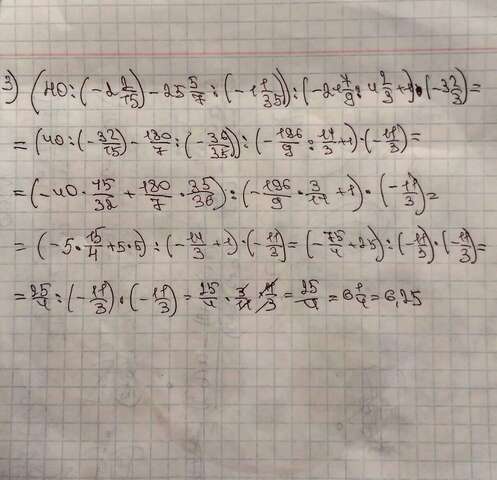 3) (40:(-2 2/15) - 25 5/7 : (-1 1/35)) : (-21 7/9 : 4 2/3 + 1) · (-3 2/3) =
= (40:(-32/15) - 180/7 : (-36/35)) : (-196/9 : 14/3 + 1) · (-11/3) =
= (-40 · 15/32 + 180/7 · 35/36) : (-196/9 · 3/14 + 1) · (-11/3) =
= (-5 · 15/4 + 5 · 5) : (-14/3 + 1) · (-11/3) = (-75/4 + 25) : (-11/3) · (-11/3) =
= 25/4 : (-11/3) · (-11/3) = 25/4 · 3/11 · 11/3 = 25/4 = 6 1/4 = 6,25